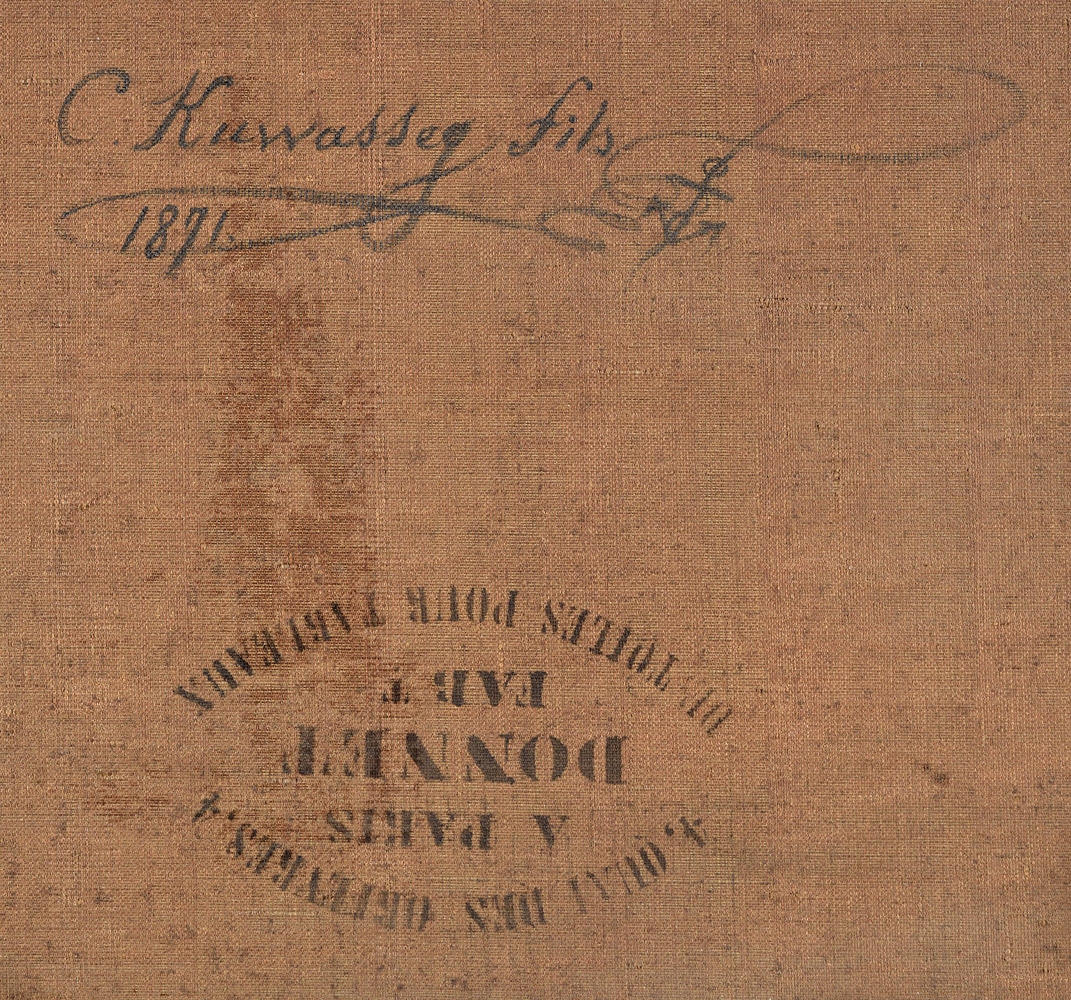 C. Kuwasseg fils
1871
4. QUAI DES ORFEVRES.4
A PARIS
DONNET
FABT
DE TOILES POUR TABLEAUX